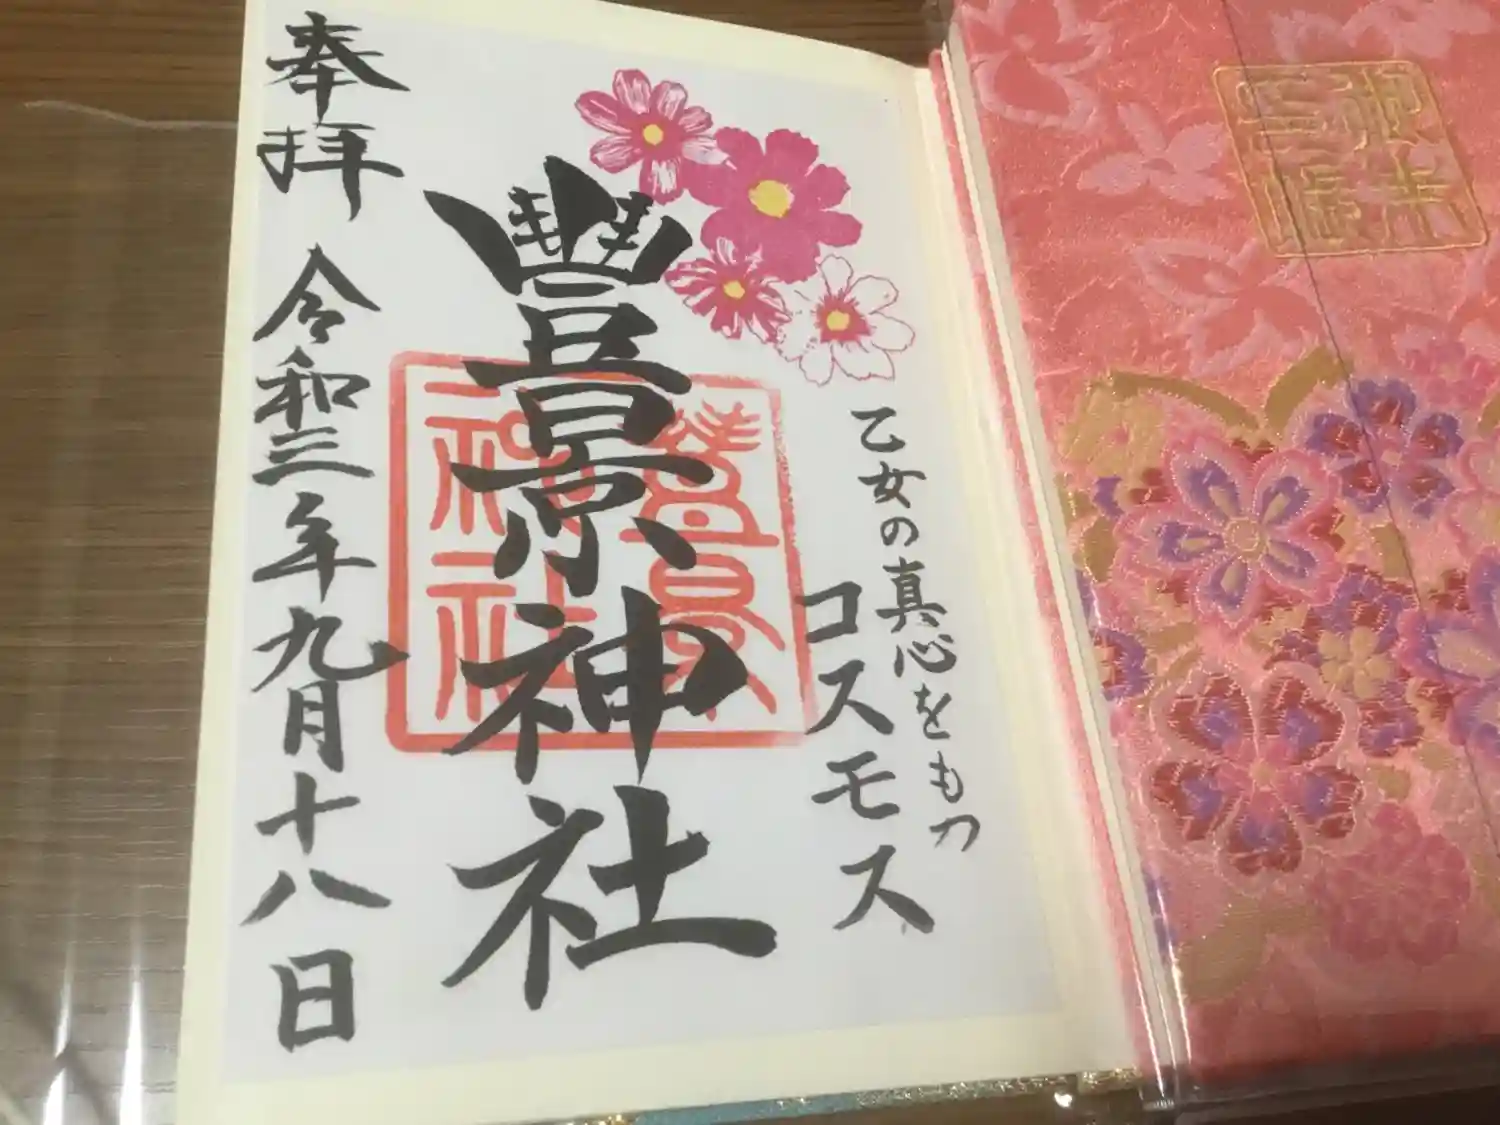 乙女の真心をもつ
コスモス
豐景神社
豊景神社
奉拝 令和三年九月十八日
御朱印帳